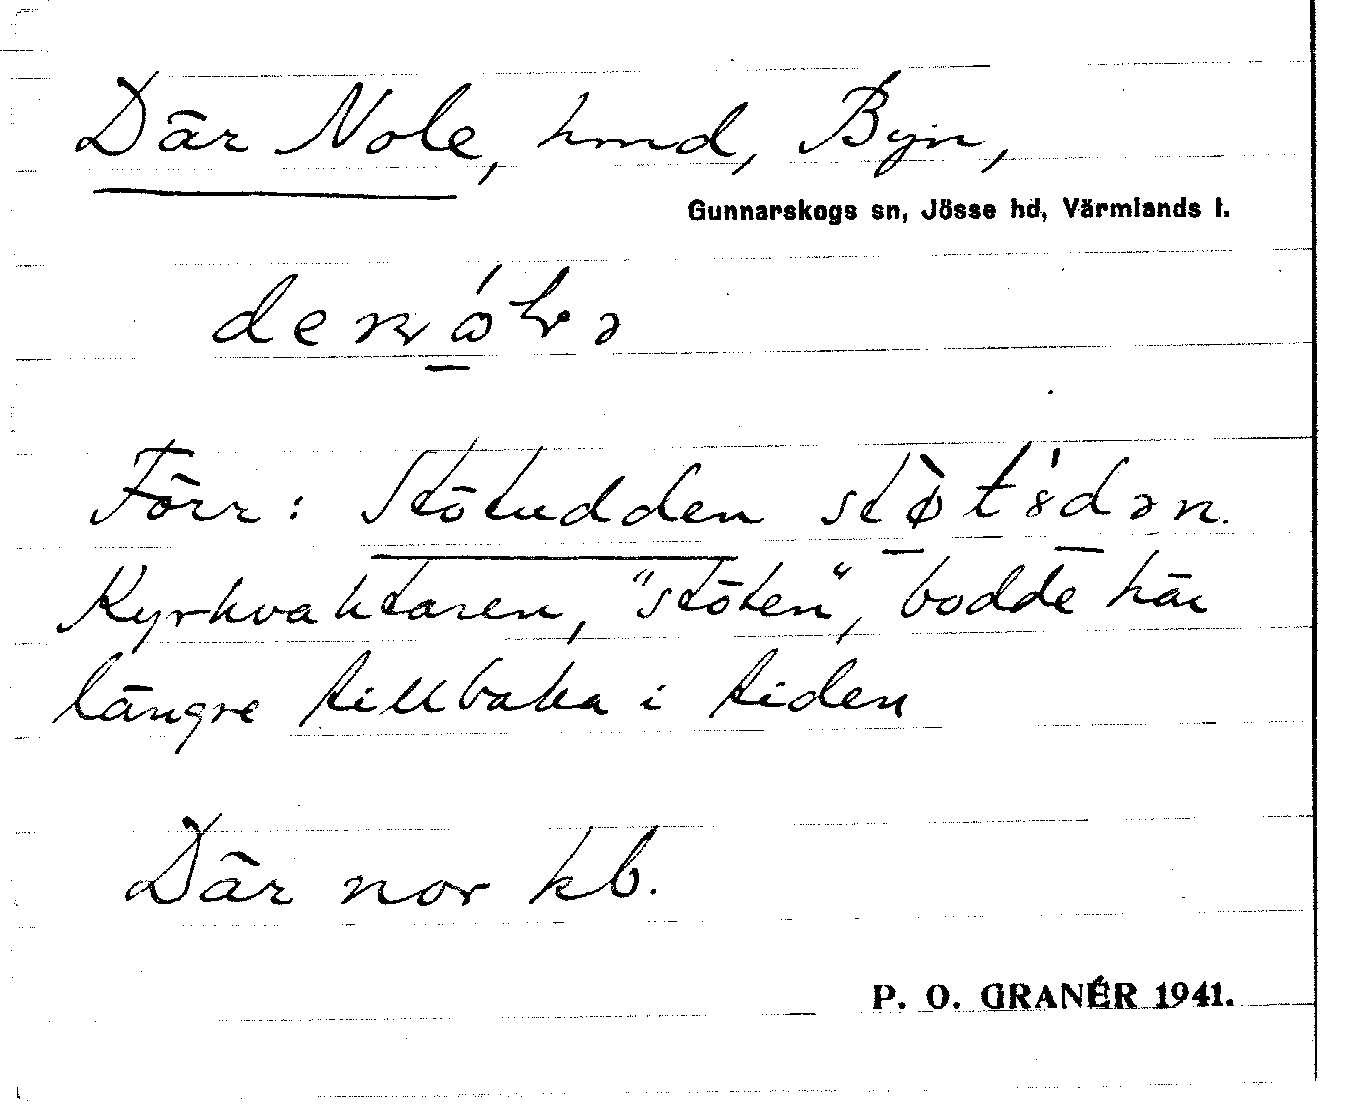 Där Nole, hmd, Byn,
Gunnarskogs sn, Jösse hd, Värmlands l.
Förr: Stötudden støtºdən.
Kyrkvaktaren, "stöten", bodde här
längre tillbaka i tiden
Där nor kb.
P. O. GRANÉR 1941.